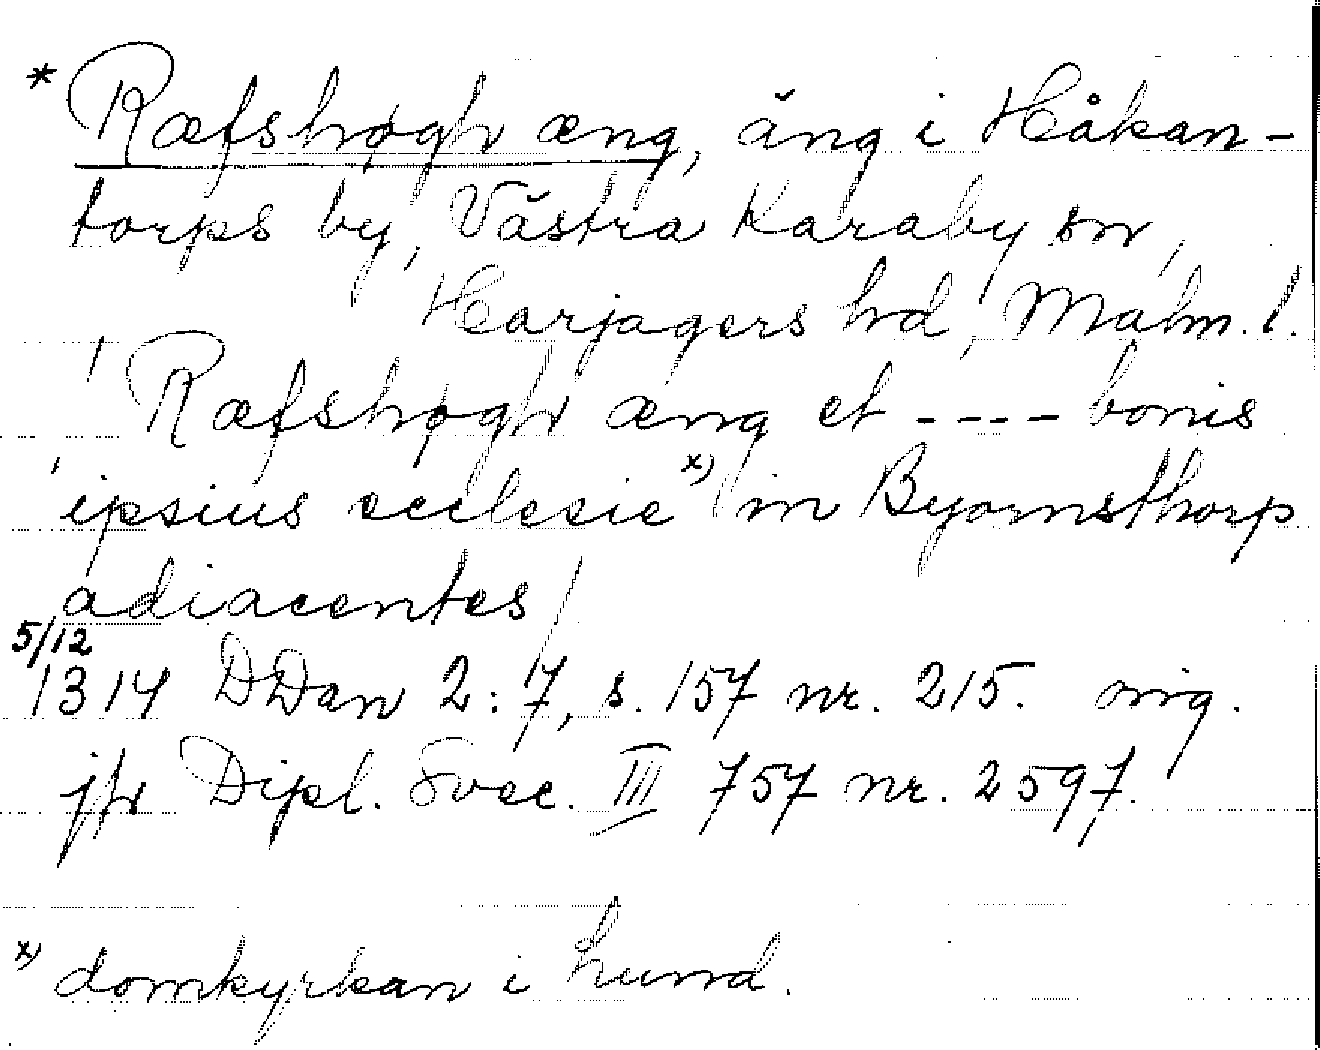 * Ræfshøgh æng, äng i Håkan-
torps by, Västra Karaby sn,
Harjagers hd, Malm. l.
Ræfshøgh æng et ---- bonis
ipsius ecclesie x) in Byornsthorp
adiacentes
5/12
1314 DDan 2:7, s. 157 nr. 215. orig.
jfr Dipl. Svec. III 757 nr. 2597.
x) domkyrkan i Lund.